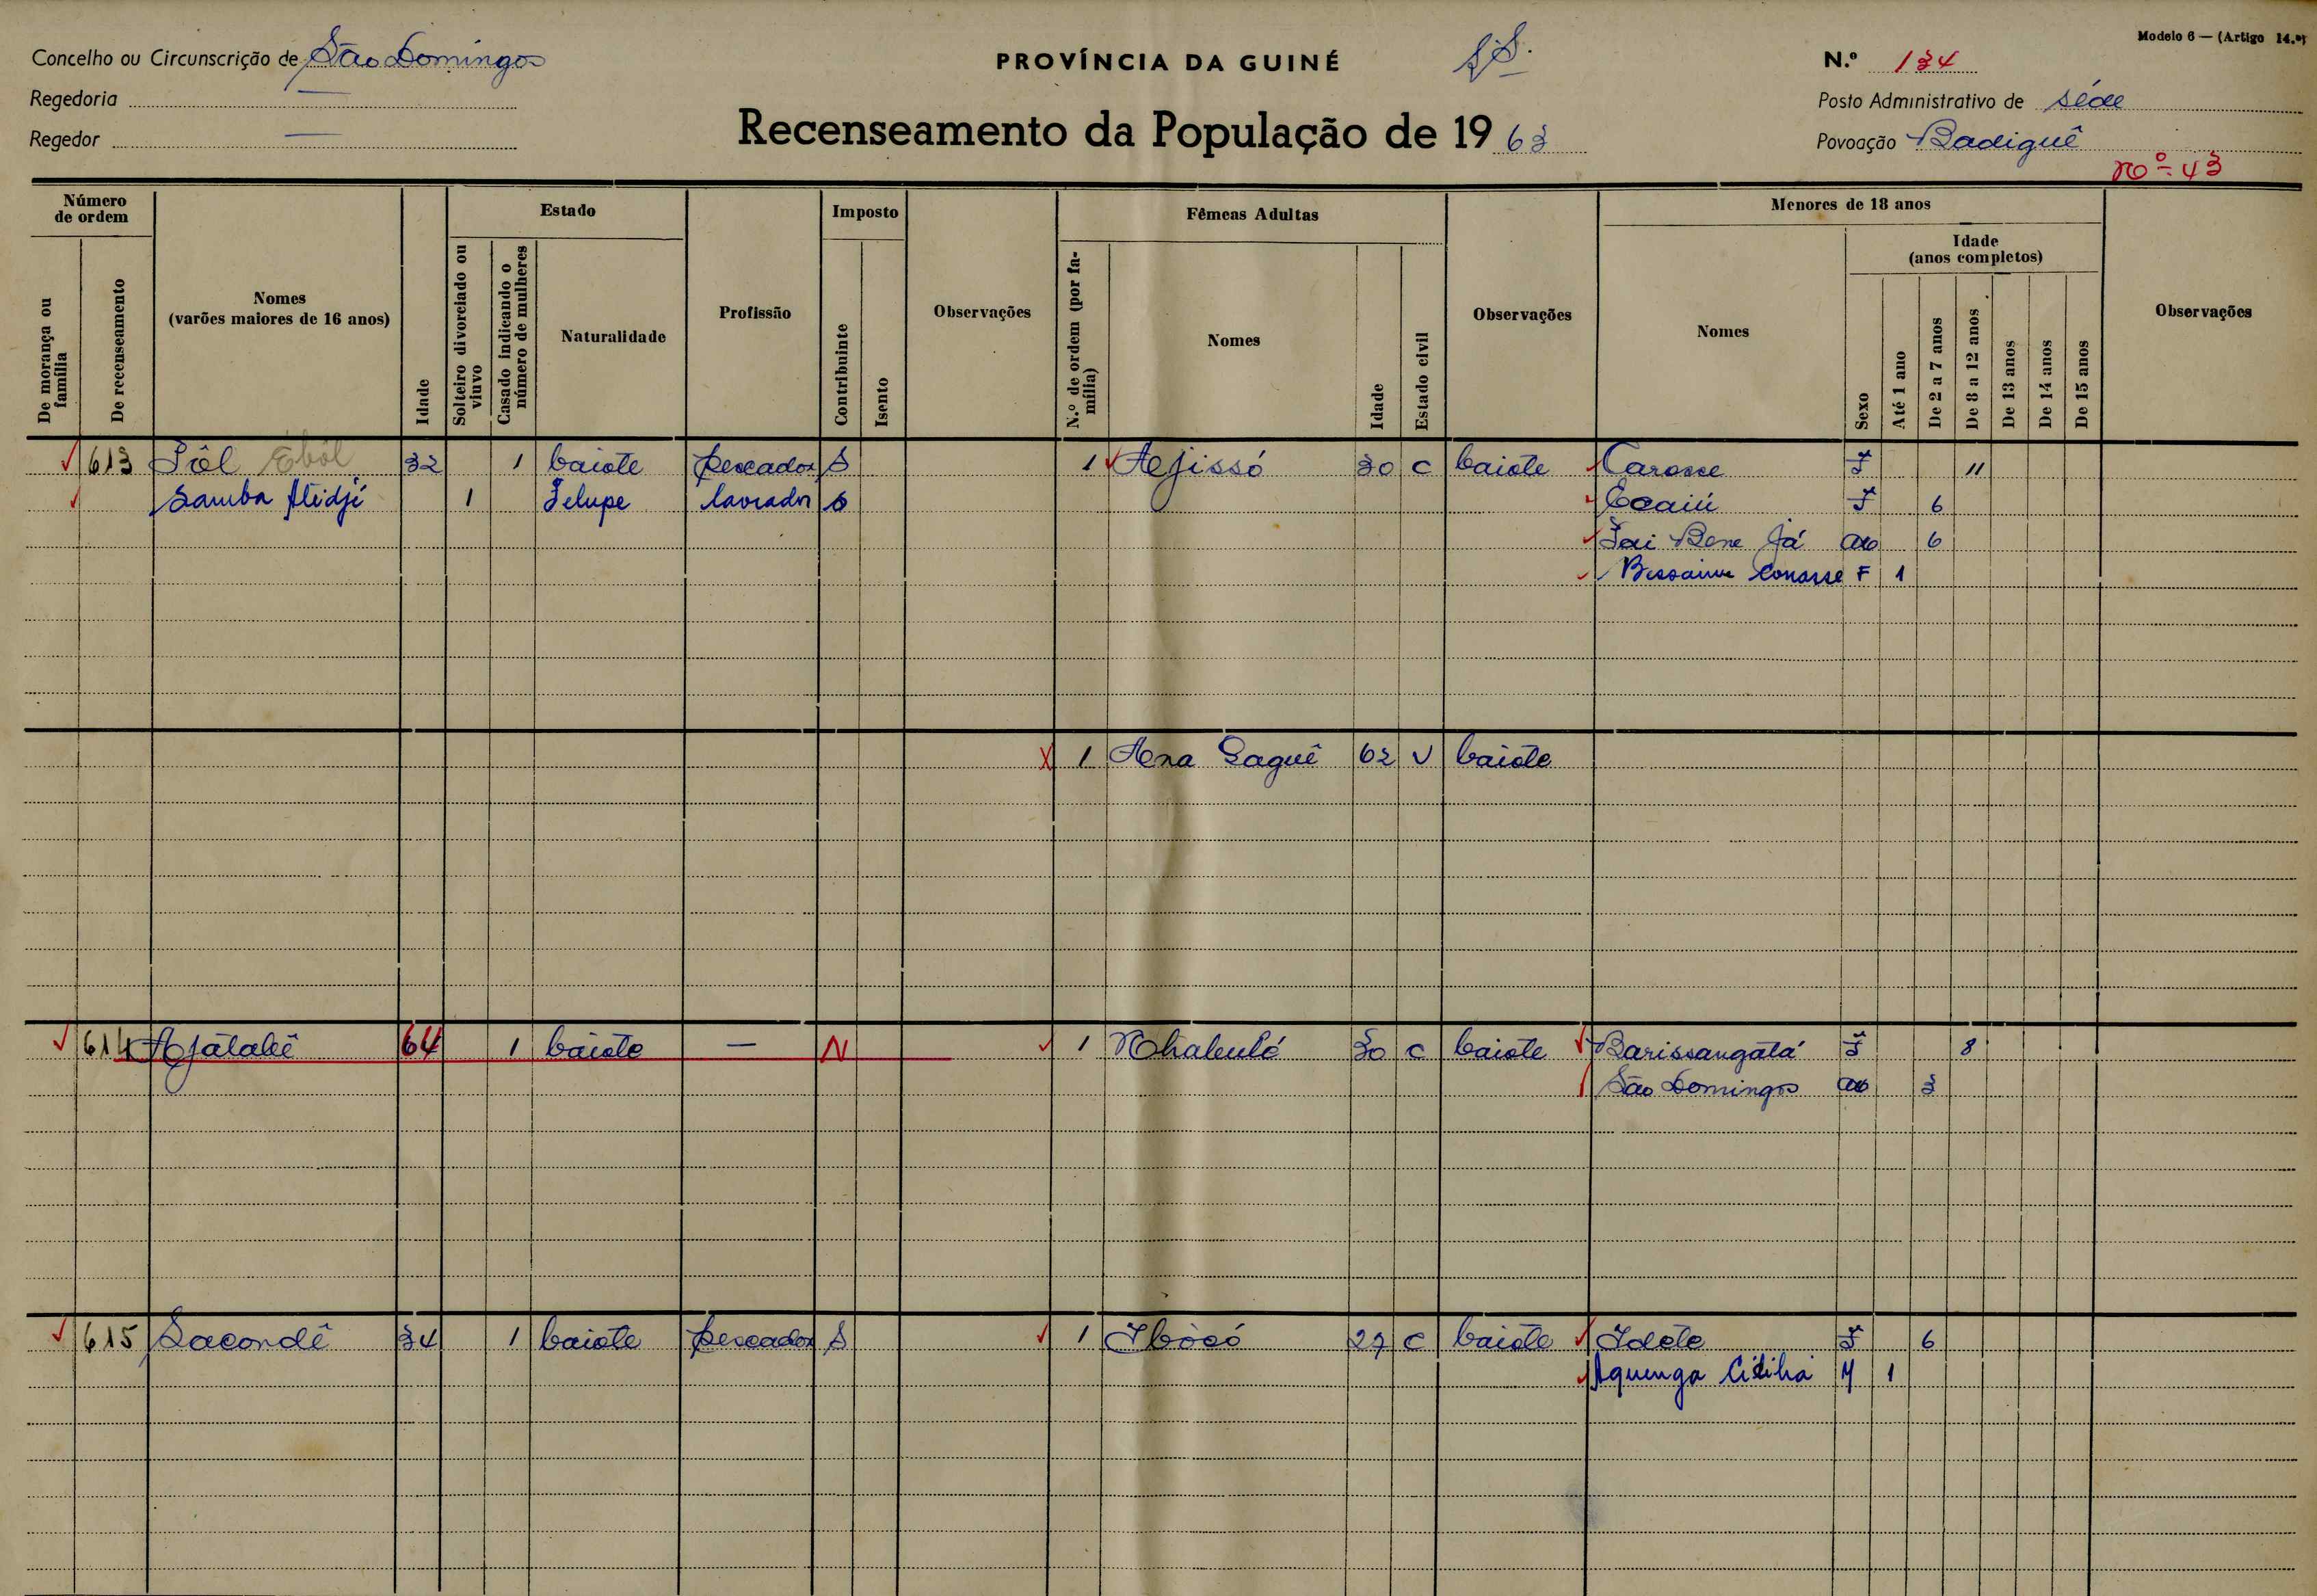 Modelo 6 — (Artigo 14.º)
Concelho ou Circunscrição de São Domingos
PROVÍNCIA DA GUINÉ
N.º 134
Regedoria —
Posto Administrativo de Séde
Regedor —
Recenseamento da População de 1963
Povoação Badiguê
Nº - 43
Número de ordem
Estado
Imposto
Fêmeas Adultas
Menores de 18 anos
Idade (anos completos)
De morança ou família
De recenseamento
Nomes (varões maiores de 16 anos)
Idade
Solteiro divorciado ou viuvo
Casado indicando o número de mulheres
Naturalidade
Profissão
Contribuinte
Isento
Observações
N.º de ordem (por família)
Nomes
Idade
Estado civil
Observações
Nomes
Sexo
Até 1 ano
De 2 a 7 anos
De 8 a 12 anos
De 13 anos
De 14 anos
De 15 anos
Observações
613 32 1 baiote pescador S 1 Aejissó 30 C baiote Carosse F 11
Samba Atidji 1 Felupe lavrador S F 6
Já 6
Conasse F 1
1 Ana Gaguê 62 V baiote
614 64 1 baiote — N 1 30 C baiote Barissangatá F 8
São Domingos 3
615 Sacondê 34 1 baiote pescador S 1 27 C baiote Idete F 6
Aquenga M 1